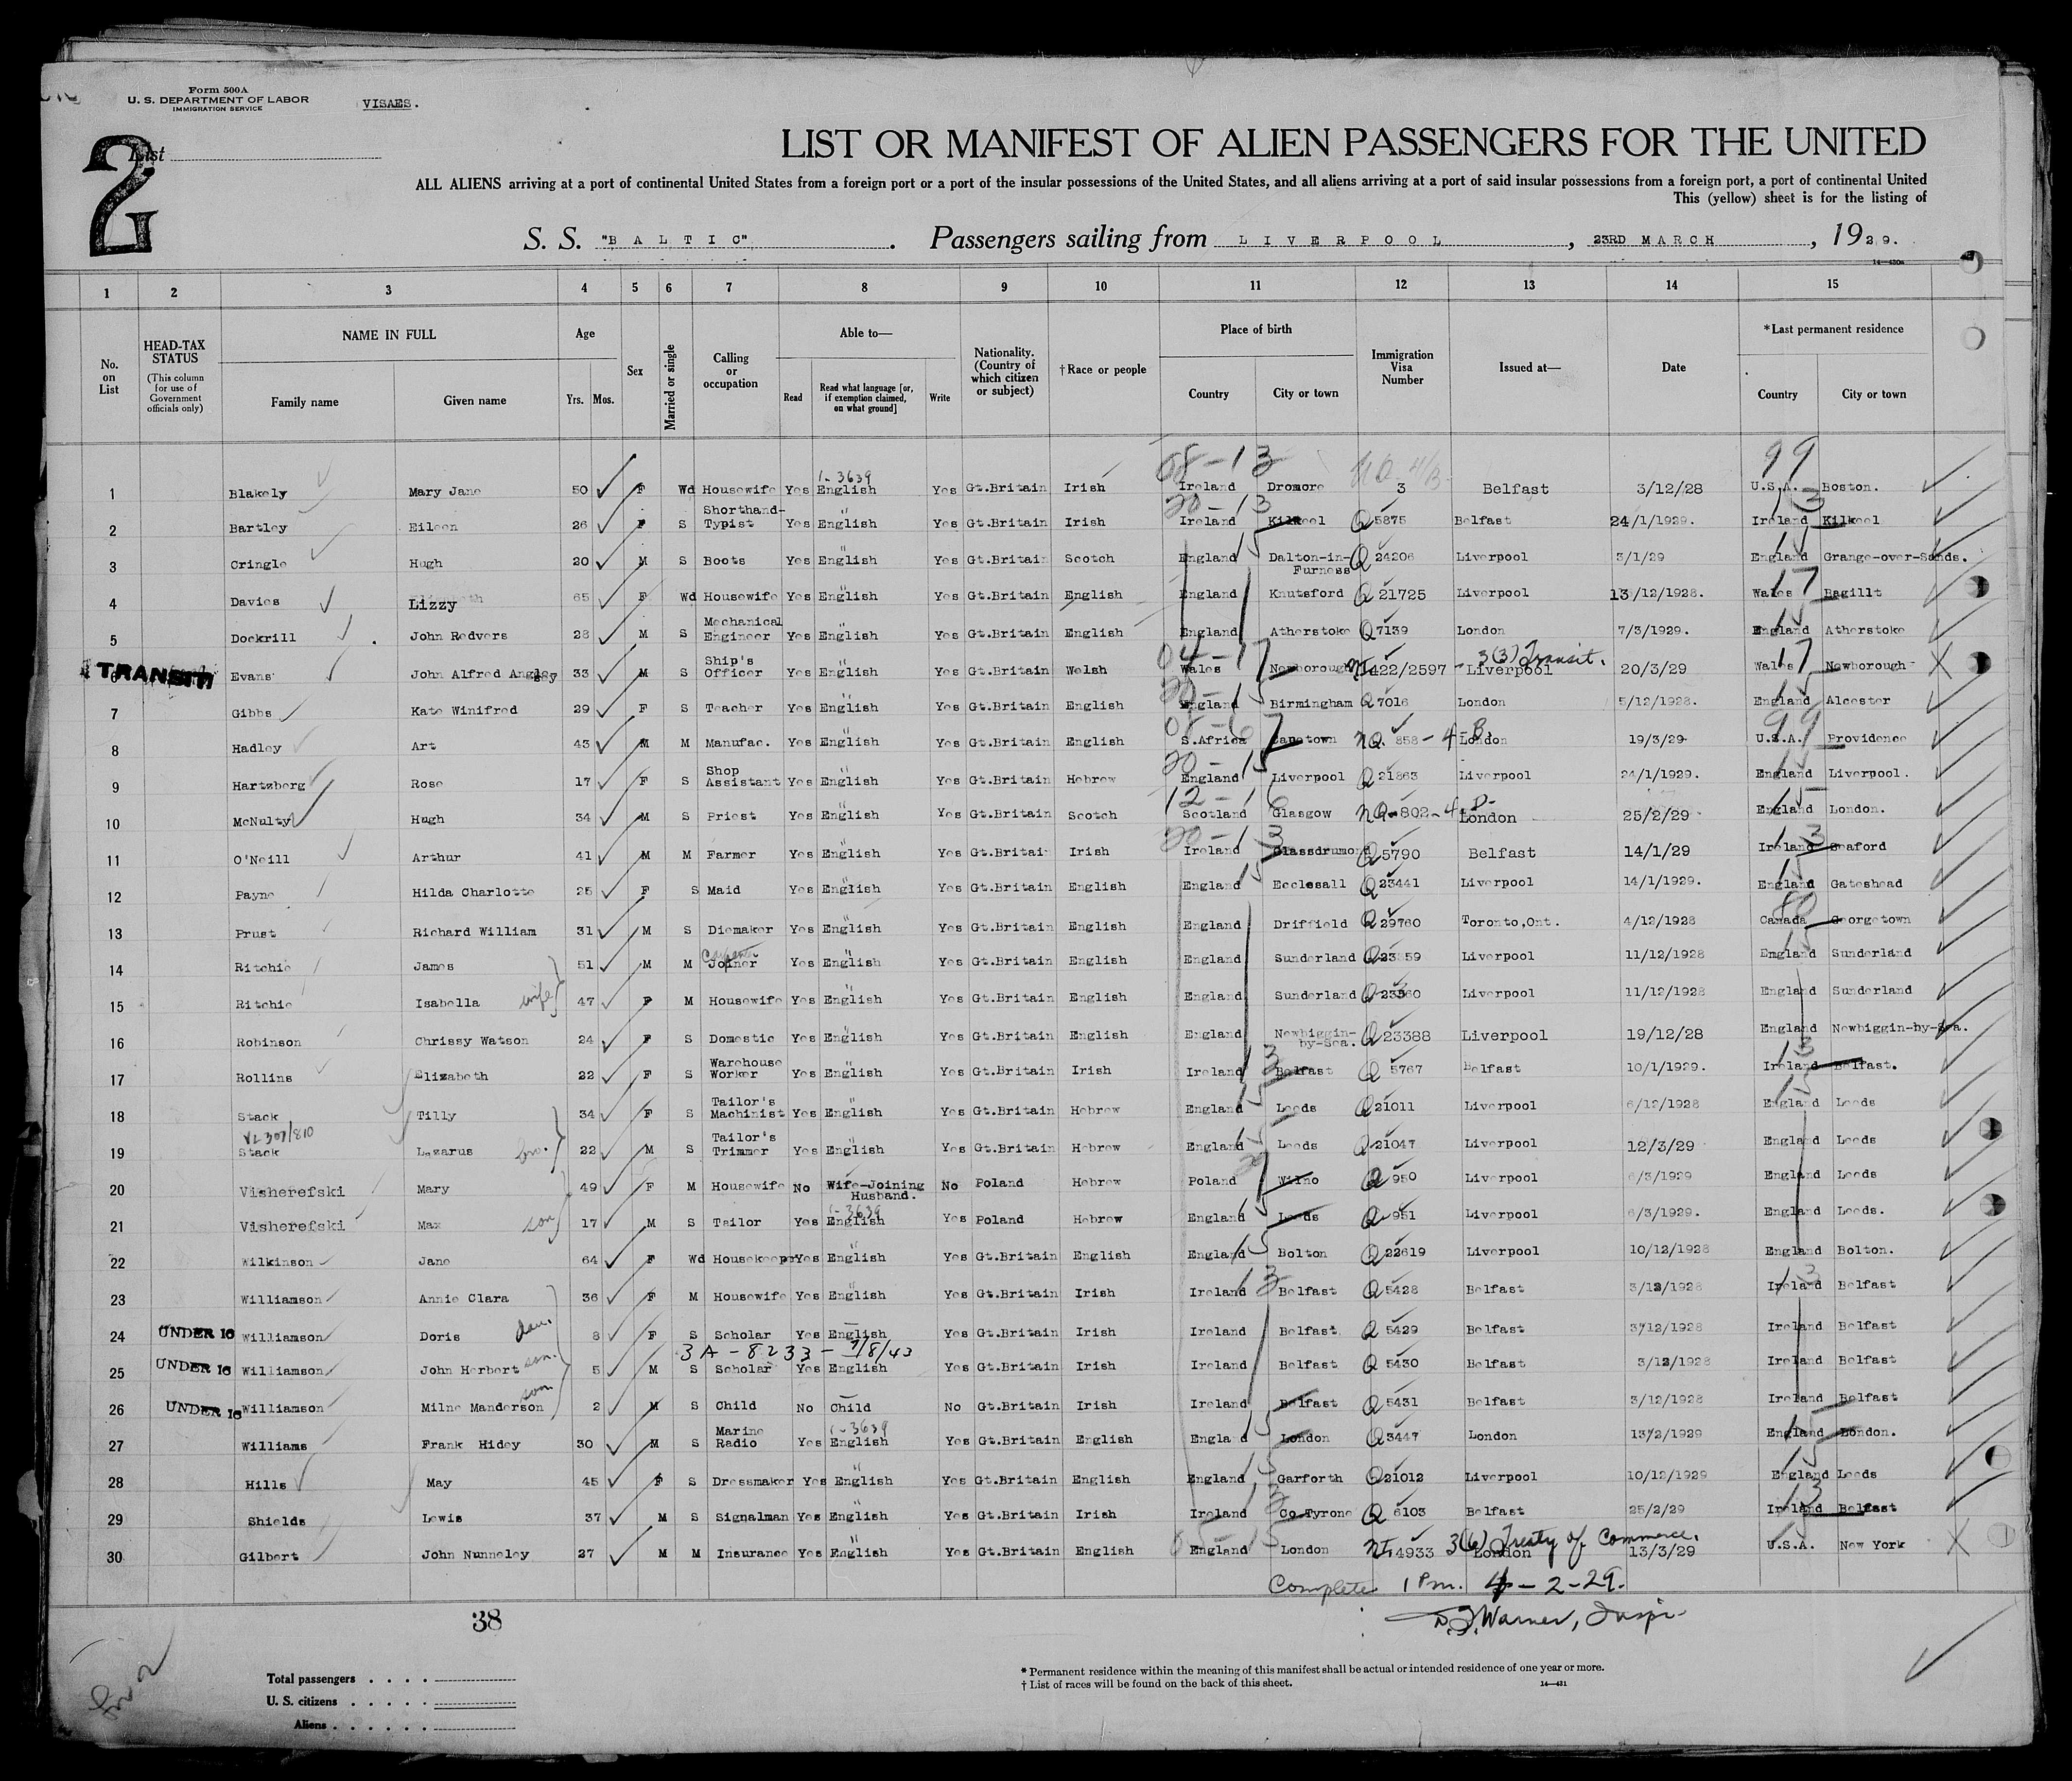 Form 500A
U. S. DEPARTMENT OF LABOR
IMMIGRATION SERVICE
VISAES.
2
List
LIST OR MANIFEST OF ALIEN PASSENGERS FOR THE UNITED
ALL ALIENS arriving at a port of continental United States from a foreign port or a port of the insular possessions of the United States, and all aliens arriving at a port of said insular possessions from a foreign port, a port of continental United
This (yellow) sheet is for the listing of
S. S. "BALTIC". Passengers sailing from LIVERPOOL, 23RD MARCH, 1929.
14—430a
1 2 3 4 5 6 7 8 9 10 11 12 13 14 15
No. on List
HEAD-TAX STATUS (This column for use of Government officials only)
NAME IN FULL Family name Given name
Age Yrs. Mos.
Sex
Married or single
Calling or occupation
Able to— Read Read what language [or, if exemption claimed, on what ground] Write
Nationality. (Country of which citizen or subject)
†Race or people
Place of birth Country City or town
Immigration Visa Number
Issued at—
Date
*Last permanent residence Country City or town
08-13 99
1-3639
1 Blakely Mary Jane 50 F Wd Housewife Yes English Yes Gt.Britain Irish Ireland Dromore 3 Belfast 3/12/28 U.S.A. Boston.
20-13 13
2 Bartley Eileen 26 F S Shorthand-Typist Yes English Yes Gt.Britain Irish Ireland Kilkeel Q 5875 Belfast 24/1/1929. Ireland Kilkeel
3 Cringle Hugh 20 M S Boots Yes English Yes Gt.Britain Scotch England Dalton-in-Furness Q 24206 Liverpool 3/1/29 England Grange-over-Sands.
4 Davies Lizzy 65 F Wd Housewife Yes English Yes Gt.Britain English England Knutsford Q 21725 Liverpool 13/12/1928. Wales Bagillt
5 Dockrill John Redvers 28 M S Mechanical Engineer Yes English Yes Gt.Britain English England Atherstoke Q 7139 London 7/3/1929. England Atherstoke
04-17 3(3) Transit. 17
TRANSIT 6 Evans John Alfred Anglsy 33 M S Ship's Officer Yes English Yes Gt.Britain Welsh Wales Newborough 422/2597 Liverpool 20/3/29 Wales Newborough
20-15 15
7 Gibbs Kate Winifred 29 F S Teacher Yes English Yes Gt.Britain English England Birmingham Q 7016 London 5/12/1928. England Alcester
08-67 99
8 Hadley Art 43 M M Manufac. Yes English Yes Gt.Britain English S.Africa Capetown NQ. 858-4-B London 19/3/29 U.S.A. Providence
20-15 15
9 Hartzberg Rose 17 F S Shop Assistant Yes English Yes Gt.Britain Hebrew England Liverpool Q 21863 Liverpool 24/1/1929. England Liverpool.
12-16 15
10 McNulty Hugh 34 M S Priest Yes English Yes Gt.Britain Scotch Scotland Glasgow NQ-802-4-D- London 25/2/29 England London.
20-13 13
11 O'Neill Arthur 41 M M Farmer Yes English Yes Gt.Britai Irish Ireland Glassdrumond Q 5790 Belfast 14/1/29 Ireland Seaford
12 Payne Hilda Charlotte 25 F S Maid Yes English Yes Gt.Britain English England Ecclesall Q 23441 Liverpool 14/1/1929. England Gateshead
13 Prust Richard William 31 M S Diemaker Yes English Yes Gt.Britain English England Driffield Q 29760 Toronto,Ont. 4/12/1928 Canada Georgetown
Carpenter
14 Ritchie James 51 M M Joiner Yes English Yes Gt.Britain English England Sunderland Q 23 59 Liverpool 11/12/1928 England Sunderland
15 Ritchie Isabella wife 47 F M Housewife Yes English Yes Gt.Britain English England Sunderland Q 23360 Liverpool 11/12/1928 England Sunderland
16 Robinson Chrissy Watson 24 F S Domestic Yes English Yes Gt.Britain English England Newbiggin-by-Sea. Q 23388 Liverpool 19/12/28 England Newbiggin-by-Sea.
17 Rollins Elizabeth 22 F S Warehouse Worker Yes English Yes Gt.Britain Irish Ireland Belfast Q 5767 Belfast 10/1/1929. Ireland Belfast.
18 Stack Tilly 34 F S Tailor's Machinist Yes English Yes Gt.Britain Hebrew England Leeds Q 21011 Liverpool 6/12/1928 England Leeds
VL 307/810
19 Stack Lazarus bro. 22 M S Tailor's Trimmer Yes English Yes Gt.Britain Hebrew England Leeds Q 21047 Liverpool 12/3/29 England Leeds
20 Visherefski Mary 49 F M Housewife No Wife-Joining Husband. No Poland Hebrew Poland Wilno Q 950 Liverpool 6/3/1929 England Leeds
1-3639
21 Visherefski Max son 17 M S Tailor Yes English Yes Poland Hebrew England Leeds Q 951 Liverpool 6/3/1929. England Leeds.
22 Wilkinson Jane 64 F Wd Housekeeper Yes English Yes Gt.Britain English England Bolton Q 22619 Liverpool 10/12/1928 England Bolton.
23 Williamson Annie Clara 36 F M Housewife Yes English Yes Gt.Britain Irish Ireland Belfast Q 5428 Belfast 3/12/1928 Ireland Belfast
24 UNDER 16 Williamson Doris dau. 8 F S Scholar Yes English Yes Gt.Britain Irish Ireland Belfast Q 5429 Belfast 3/12/1928 Ireland Belfast
3A-8233-7/8/43
25 UNDER 16 Williamson John Herbert son. 5 M S Scholar Yes English Yes Gt.Britain Irish Ireland Belfast Q 5430 Belfast 3/12/1928 Ireland Belfast
26 UNDER 16 Williamson Milne Manderson son 2 M S Child No Child No Gt.Britain Irish Ireland Belfast Q 5431 Belfast 3/12/1928 Ireland Belfast
1-3639
27 Williams Frank Hidey 30 M S Marine Radio Yes English Yes Gt.Britain English Engla d London Q 3447 London 13/2/1929 England London.
28 Hills May 45 F S Dressmaker Yes English Yes Gt.Britain English England Garforth Q 21012 Liverpool 10/12/1929 England Leeds
29 Shields Lewis 37 M S Signalman Yes English Yes Gt.Britain Irish Ireland Co.Tyrone Q 6103 Belfast 25/2/29 Ireland Belfast
3(6) Treaty of Commerce.
30 Gilbert John Nunneley 27 M M Insurance Yes English Yes Gt.Britain English England London NI 4933 London 13/3/29 U.S.A. New York
Complete 1 Pm. 4-2-29.
38
D.J. Warner, Inspr
Total passengers
U. S. citizens
Aliens
* Permanent residence within the meaning of this manifest shall be actual or intended residence of one year or more.
† List of races will be found on the back of this sheet.
14—431